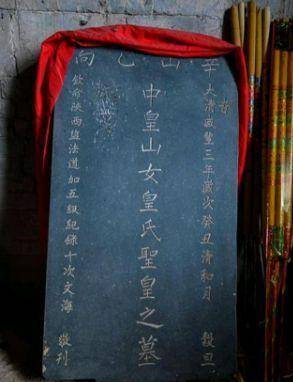 辛山乙向
大清咸豐三年歲次癸丑清和月 穀旦
中皇山女皇氏聖皇之墓
欽命陝西鹽法道加五級紀錄十次文海 敬刊